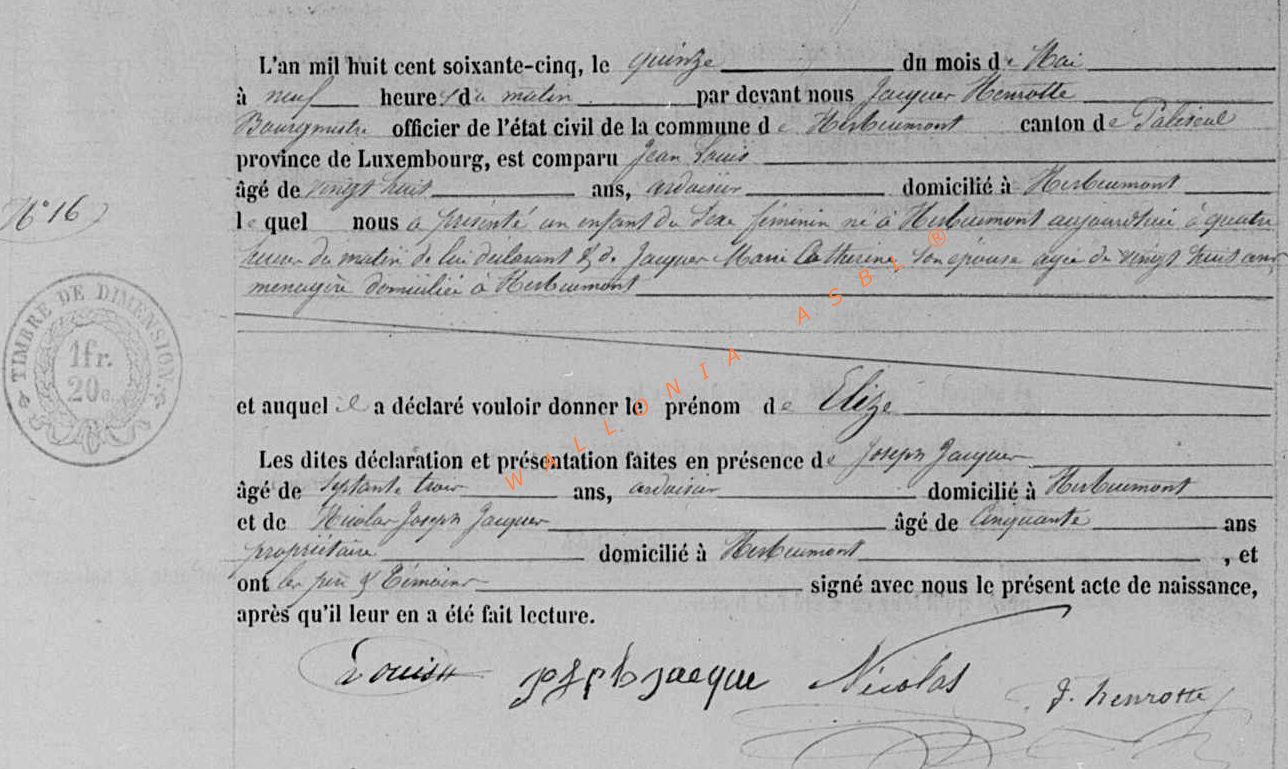 L'an mil huit cent soixante-cinq, le quinze du mois de Mai
à neuf heures du matin par devant nous Jacques Henrotte
Bourgmestre officier de l'état civil de la commune de Herbeumont canton de Paliseul
province de Luxembourg, est comparu Jean Louis
âgé de vingt huit ans, ardoisier domicilié à Herbeumont
N° 16
lequel nous a présenté un enfant du sexe féminin né à Herbeumont aujourd'hui à quatre
heures du matin de lui déclarant & de Jacques Marie Catherine, son épouse agée de vingt huit ans
menagère domiciliée à Herbeumont
TIMBRE DE DIMENSION.
1fr.
20c.
et auquel il a déclaré vouloir donner le prénom de Elize
Les dites déclaration et présentation faites en présence de Joseph Jacques
âgé de septante trois ans, ardoisier domicilié à Herbeumont
et de Nicolas Joseph Jacques âgé de Cinquante ans
propriétaire domicilié à Herbeumont, et
ont les père & Témoins signé avec nous le présent acte de naissance,
après qu'il leur en a été fait lecture.
jacque Nicolas J. henrotte
WALLONIA ASBL ®